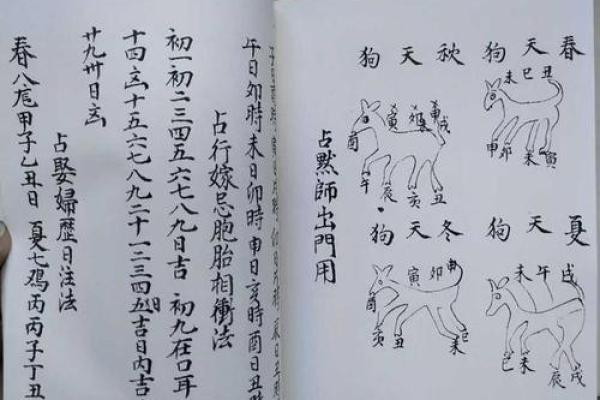 春天狗
丑巳未
寅未卯申
秋天狗
戌
寅
酉
丑亥辰午
夏天狗
戌午未
戌辰未巳
冬天狗
申卯寅
酉
巳未丑亥
占黙師出門用
午日卯時未日卯時申日亥時酉日丑時
占行嫁忌胞胎相衝法
初一初二三四五六七八九日吉 初九在口耳
十四㐫十五六七八九二十一二三四五日吉日内吉
廿九卅日㐫
占娶婦歷日注法
春八庖甲子乙丑日 夏七鴉丙丙子丁丑